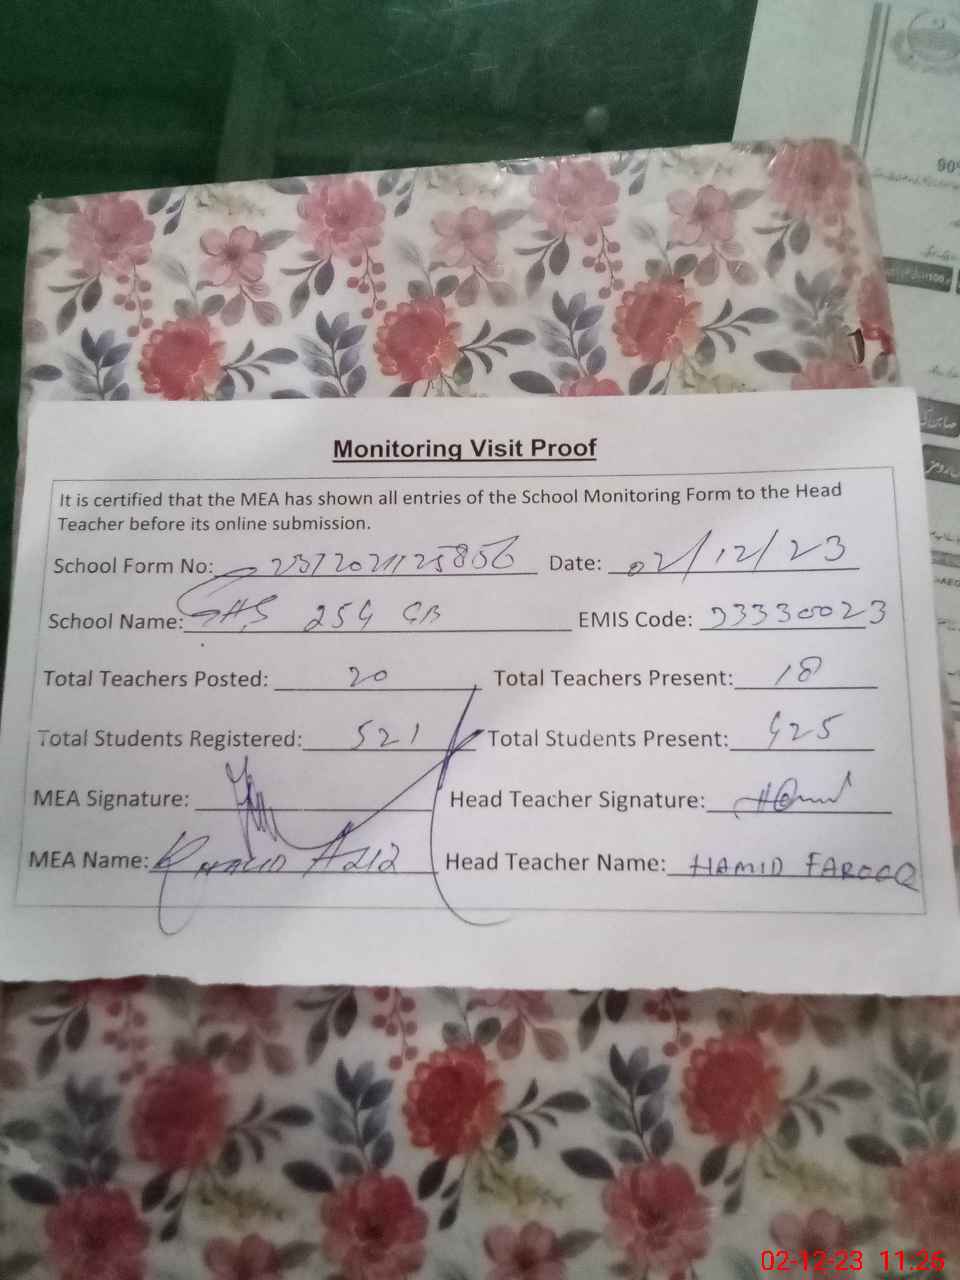 Monitoring Visit Proof
It is certified that the MEA has shown all entries of the School Monitoring Form to the Head
Teacher before its online submission.
School Form No: Date: 02/12/23
School Name: GHS 254 GB EMIS Code: 33330023
Total Teachers Posted: 20 Total Teachers Present: 18
Total Students Registered: 521 Total Students Present: 425
MEA Signature: Head Teacher Signature: Hamid
MEA Name: KHALID AZIZ Head Teacher Name: HAMID FAROOQ
02-12-23 11:26